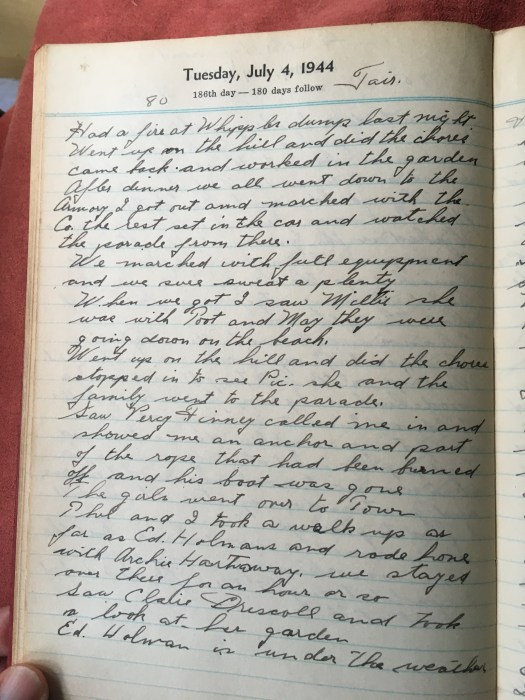 Tuesday, July 4, 1944
186th day — 180 days follow
80
Fair.
Had a fire at Whipples dump last night
Went up on the hill and did the chores
came back and worked in the garden
After dinner we all went down to the
Armory I got out and marched with the
Co. the rest set in the car and watched
the parade from there.
We marched with full equippment
and we sure sweat a plenty
When we got I saw Millie she
was with Toot and May they were
going down on the beach.
Went up on the hill and did the chores
stopped in to see Pic. she and the
family went to the parade.
Saw Percy Finney called me in and
showed me an anchor and part
of the rope that had been burned
off and his boat was gone
The gals went over to Town
Phil and I took a walk up as
far as Ed. Holmans and rode home
with Archie Hathaway. we stayed
over there for an hour or so
Saw Driscoll and took
a look at her garden
Ed. Holman is under the weather